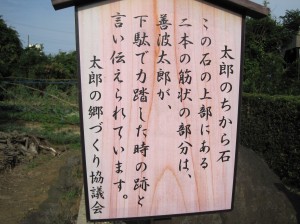 太郎のちから石
この石の上部にある
二本の筋状の部分は、
善波太郎が
下駄で力踏した時の跡と
言い伝えられています。
太郎の郷づくり協議会